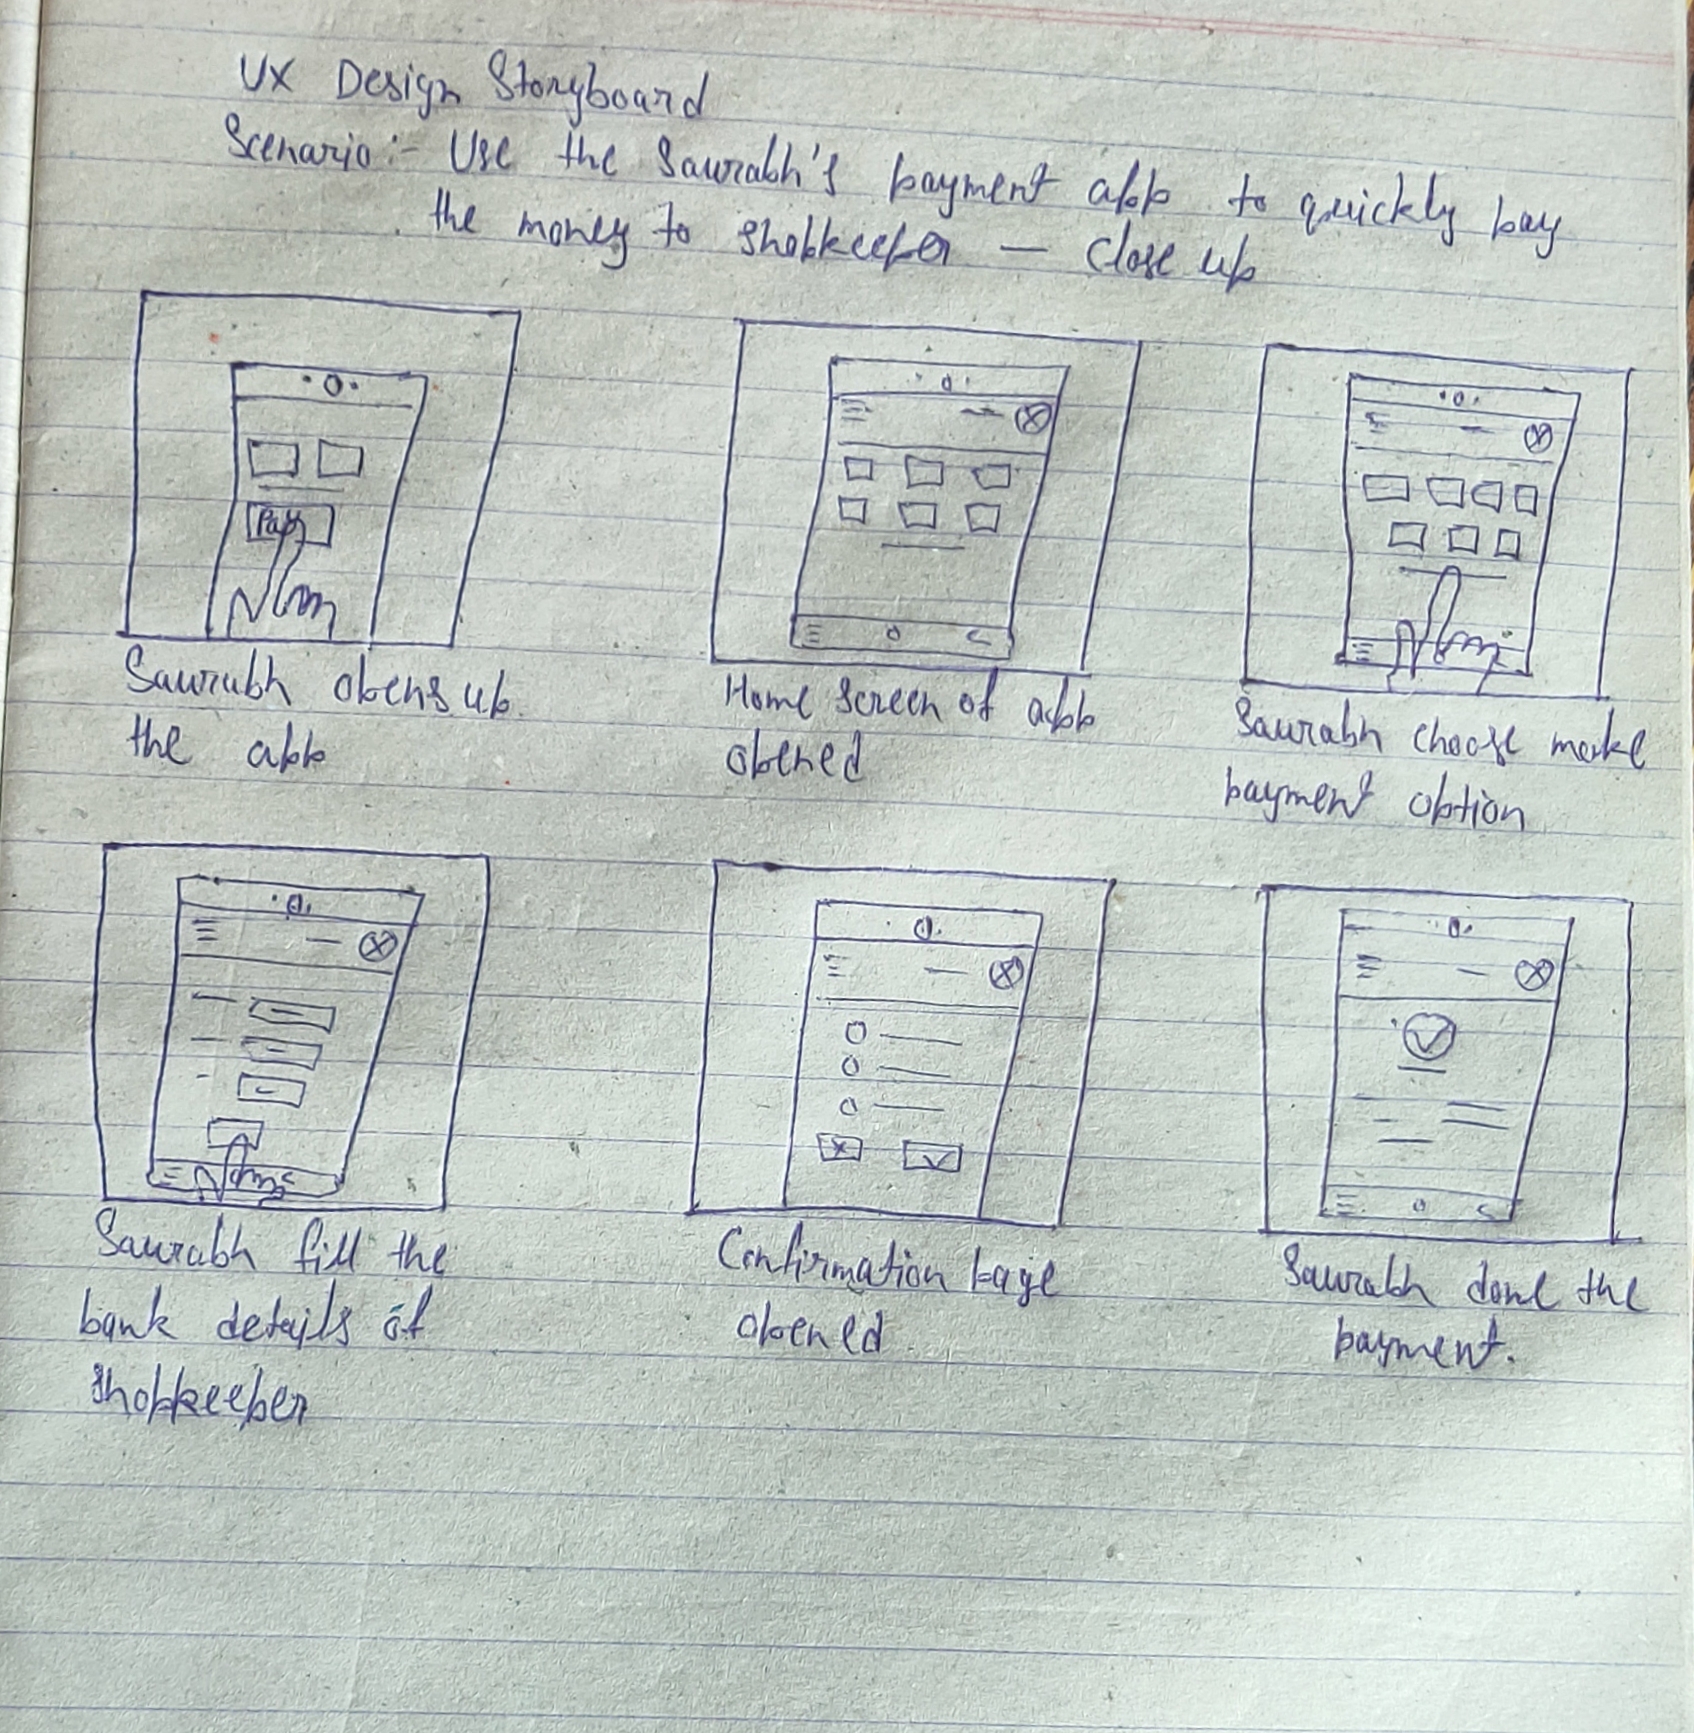 UX Design Storyboard
Scenario:- Use the Saurabh's payment app to quickly pay
the money to shopkeeper — Close up
Pay
Saurabh opens up
the app
Home Screen of app
opened
Saurabh choose make
payment option
Saurabh fill the
bank details of
shopkeeper
Confirmation page
opened
Saurabh done the
payment.